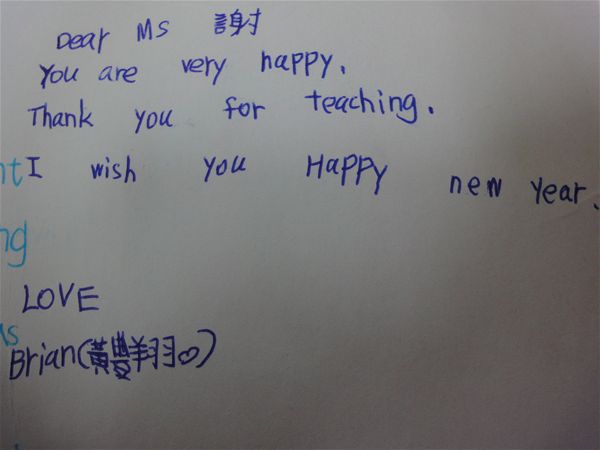 Dear Ms 謝
You are very happy.
Thank you for teaching.
I wish you Happy new year.
LOVE
Brian(黃豐翔♡)